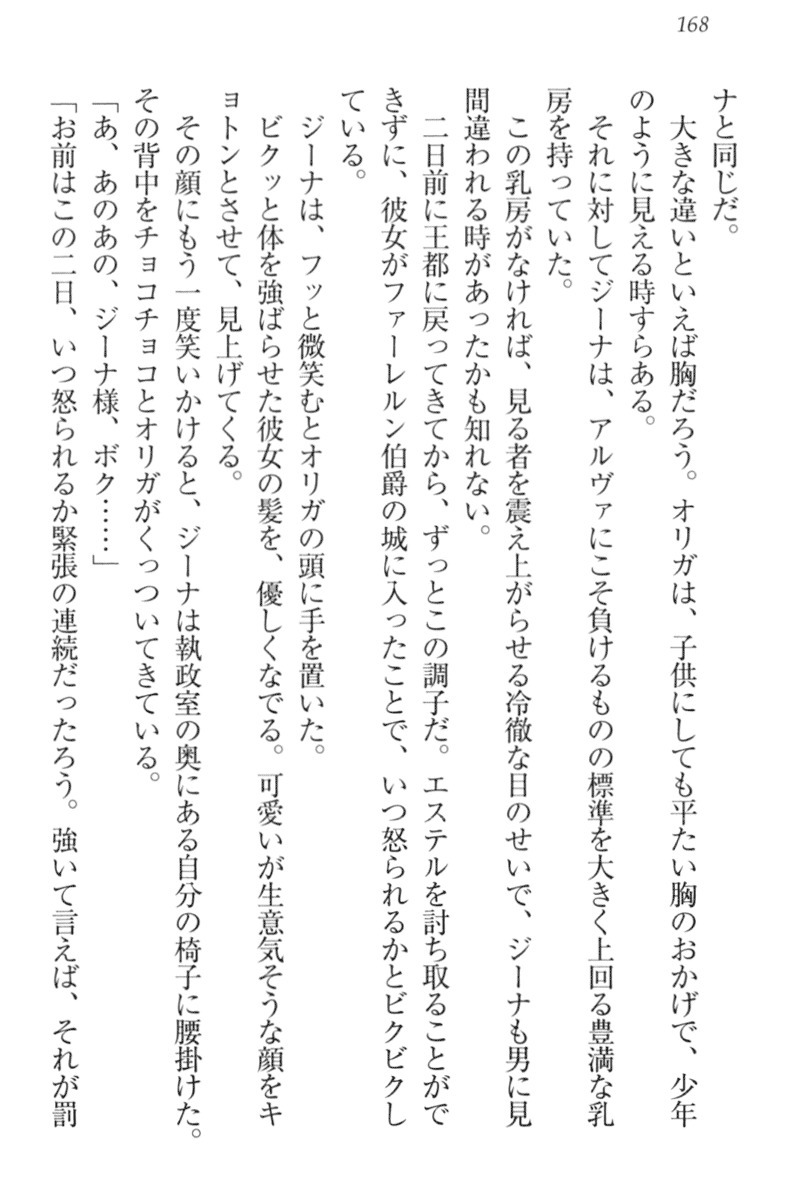 168
ナと同じだ。
大きな違いといえば胸だろう。オリガは、子供にしても平たい胸のおかげで、少年
のように見える時すらある。
それに対してジーナは、アルヴァにこそ負けるものの標準を大きく上回る豊満な乳
房を持っていた。
この乳房がなければ、見る者を震え上がらせる冷徹な目のせいで、ジーナも男に見
間違われる時があったかも知れない。
二日前に王都に戻ってきてから、ずっとこの調子だ。エステルを討ち取ることがで
きずに、彼女がファーレルン伯爵の城に入ったことで、いつ怒られるかとビクビクし
ている。
ジーナは、フッと微笑むとオリガの頭に手を置いた。
ビクッと体を強ばらせた彼女の髪を、優しくなでる。可愛いが生意気そうな顔をキ
ョトンとさせて、見上げてくる。
その顔にもう一度笑いかけると、ジーナは執政室の奥にある自分の椅子に腰掛けた。
その背中をチョコチョコとオリガがくっついてきている。
「あ、あのあの、ジーナ様、ボク……」
「お前はこの二日、いつ怒られるか緊張の連続だったろう。強いて言えば、それが罰